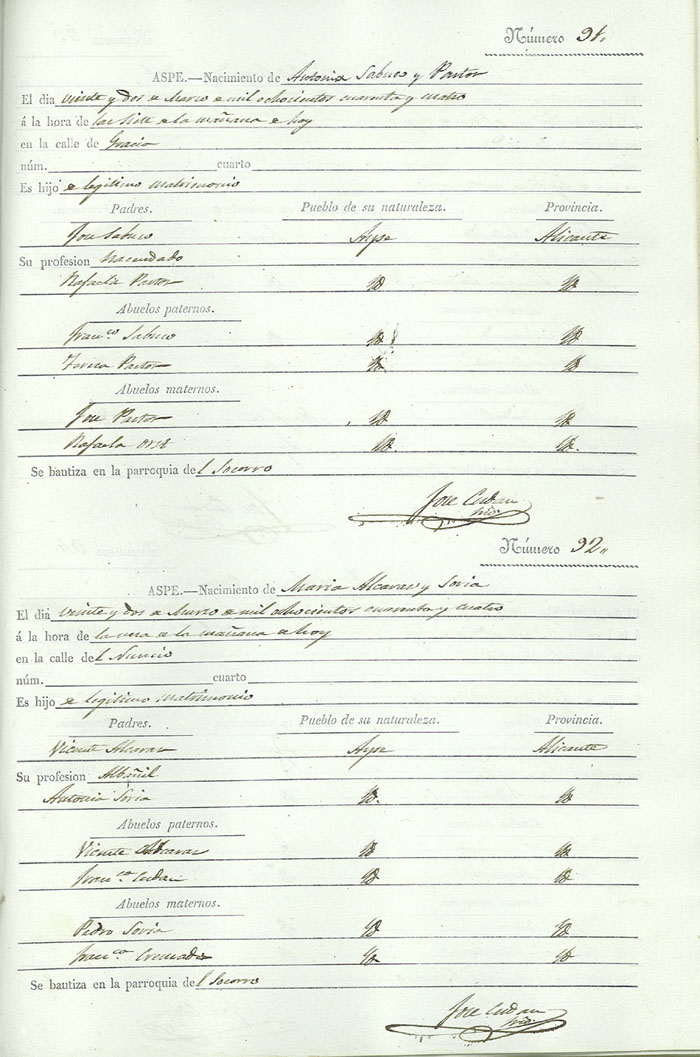 Número 91.
ASPE.—Nacimiento de Antonia Sabuco y Pastor
El dia veinte y dos de Marzo de mil ochocientos cuarenta y cuatro
á la hora de las siete de la mañana de hoy
en la calle de Gracia
núm. cuarto
Es hijo de legitimo matrimonio
Padres. Pueblo de su naturaleza. Provincia.
Jose Sabuco Aspe Alicante
Su profesion hacendado
Rafaela Pastor Yd. Yd.
Abuelos paternos.
Franco. Sabuco Yd. Yd.
Teresa Pastor Yd. Yd.
Abuelos maternos.
Jose Pastor Yd. Yd.
Rafaela Yd. Yd.
Se bautiza en la parroquia del Socorro
Jose
Número 92.
ASPE.—Nacimiento de Maria Alcaraz y Soria
El dia veinte y dos de Marzo de mil ochocientos cuarenta y cuatro
á la hora de la una de la mañana de hoy
en la calle del Nuncio
núm. cuarto
Es hijo de legitimo matrimonio
Padres. Pueblo de su naturaleza. Provincia.
Vicente Alcaraz Aspe Alicante
Su profesion Albañil
Antonia Soria Yd. Yd.
Abuelos paternos.
Vicente Alcaraz Yd. Yd.
Franca. Yd. Yd.
Abuelos maternos.
Pedro Soria Yd. Yd.
Franca. Cremades Yd. Yd.
Se bautiza en la parroquia del Socorro
Jose